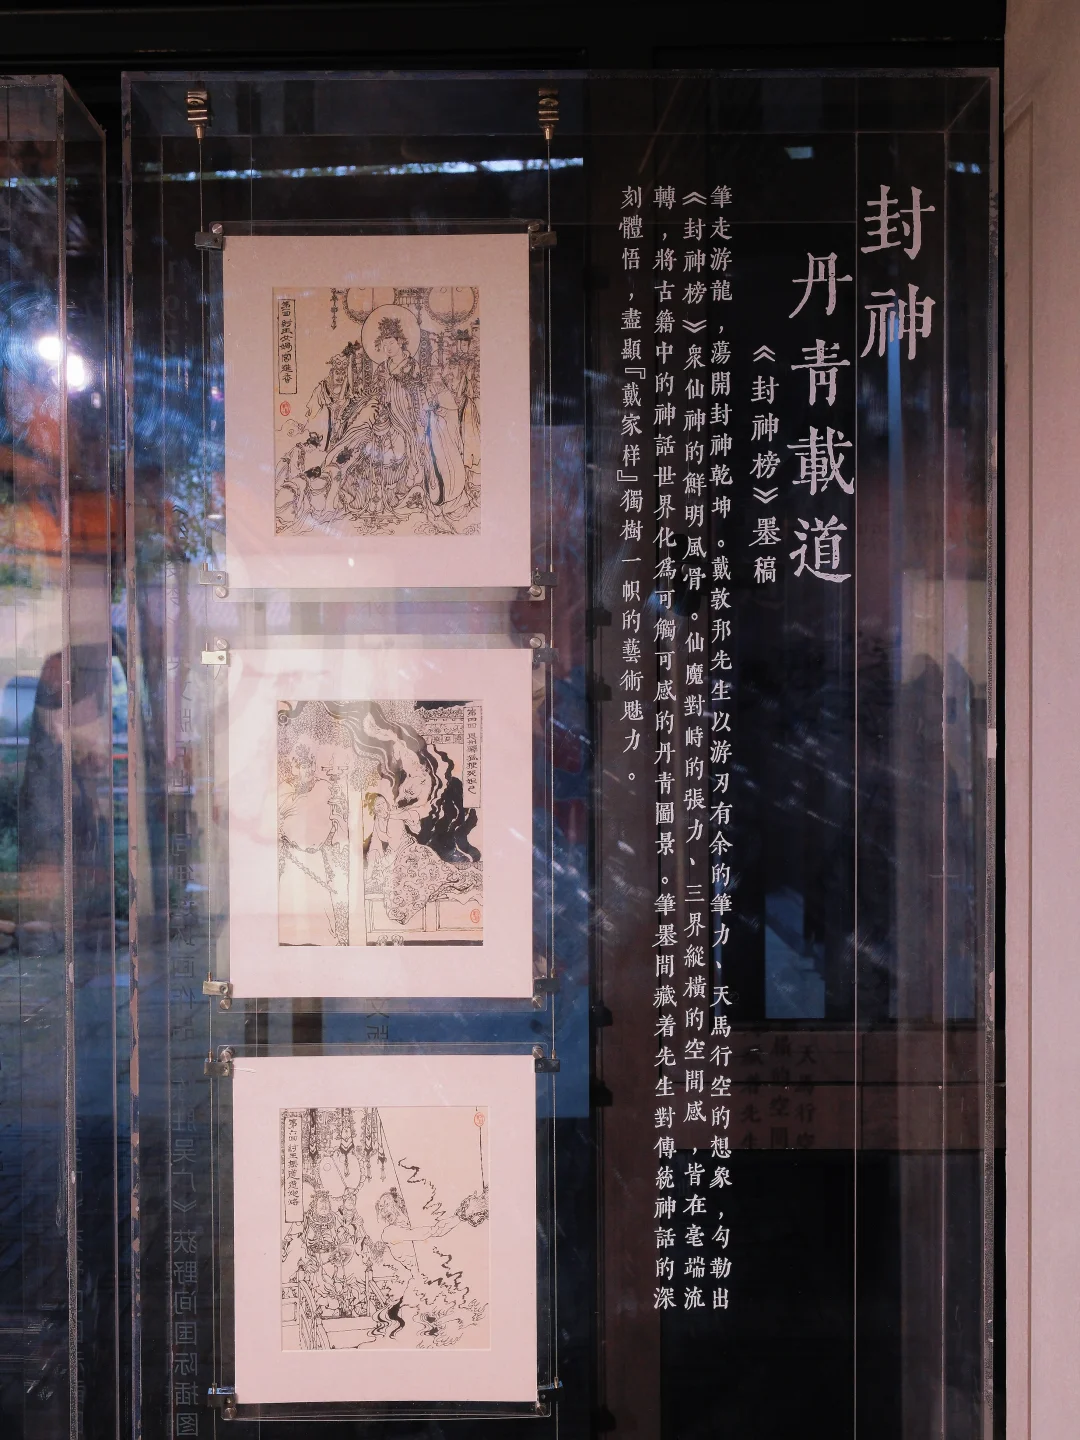 封神
丹青載道
《封神榜》墨稿
筆走游龍，蕩開封神乾坤。戴敦邦先生以游刃有余的筆力、天馬行空的想象，勾勒出
《封神榜》衆仙神的鮮明風骨。仙魔對峙的張力、三界縱橫的空間感，皆在毫端流
轉，將古籍中的神話世界化爲可觸可感的丹青圖景。筆墨間藏着先生對傳統神話的深
刻體悟，盡顯『戴家样』獨樹一帜的藝術魅力。
第一回 紂王女媧宮進香
第四回 恩州驛狐狸死妲己
第六回 紂王無道造炮烙